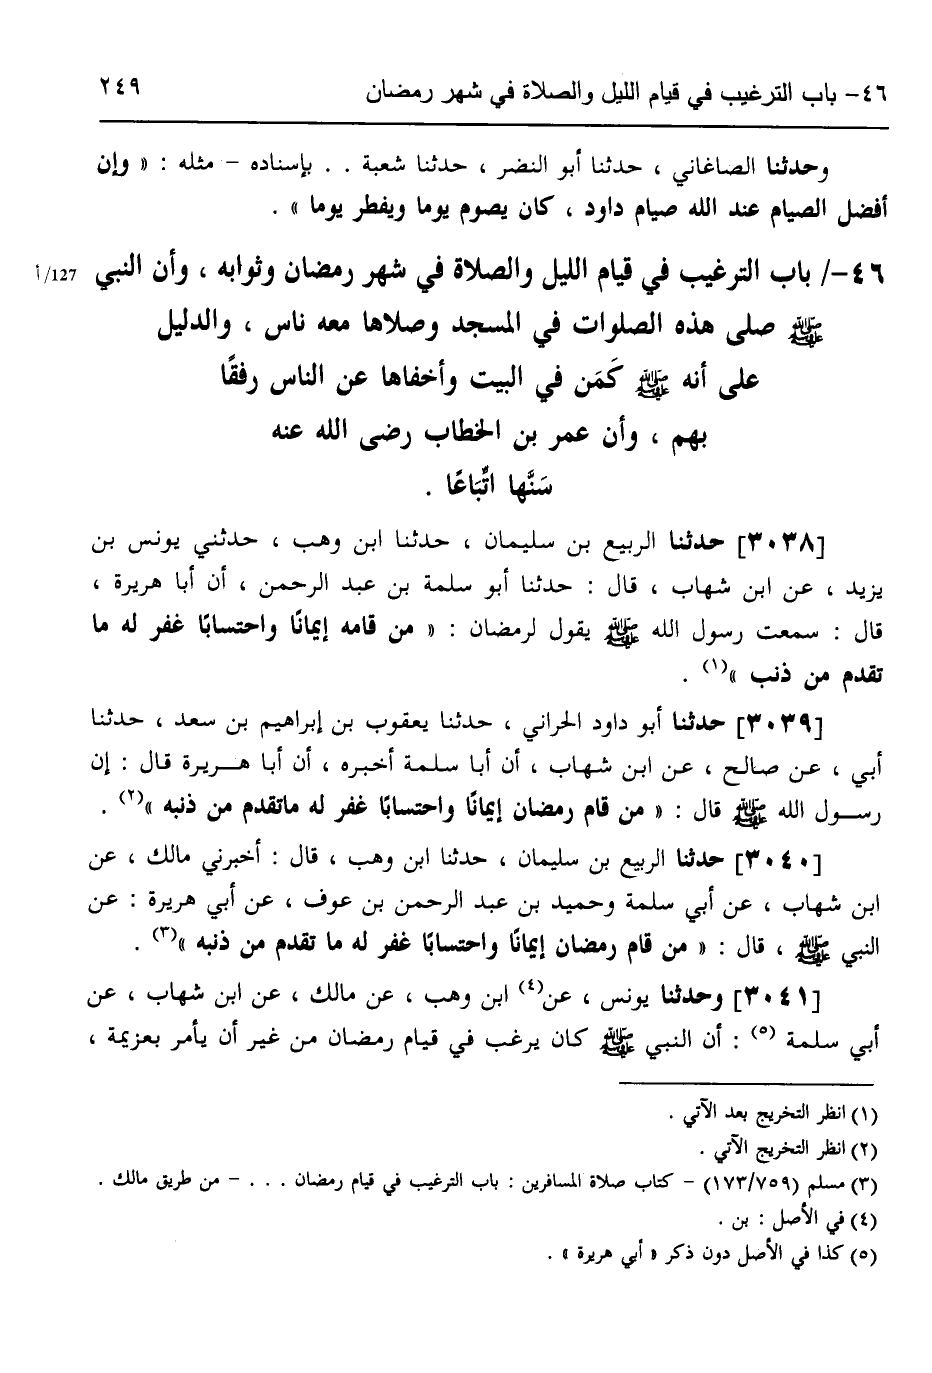 ٤٦- باب الترغيب في قيام الليل والصلاة في شهر رمضان ٢٤٩
وحدثنا الصاغاني ، حدثنا أبو النضر ، حدثنا شعبة . . بإسناده - مثله : « وإن
أفضل الصيام عند الله صيام داود ، كان يصوم يوما ويفطر يوما » .
٤٦-/ باب الترغيب في قيام الليل والصلاة في شهر رمضان وثوابه ، وأن النبي 127/أ
ﷺ صلى هذه الصلوات في المسجد وصلاها معه ناس ، والدليل
على أنه ﷺ كَمَن في البيت وأخفاها عن الناس رفقًا
بهم ، وأن عمر بن الخطاب رضى الله عنه
سَنَّها اتِّبَاعًا .
[٣٠٣٨] حدثنا الربيع بن سليمان ، حدثنا ابن وهب ، حدثني يونس بن
يزيد ، عن ابن شهاب ، قال : حدثنا أبو سلمة بن عبد الرحمن ، أن أبا هريرة ،
قال : سمعت رسول الله ﷺ يقول لرمضان : « من قامه إيمانًا واحتسابًا غفر له ما
تقدم من ذنب »(١) .
[٣٠٣٩] حدثنا أبو داود الحراني ، حدثنا يعقوب بن إبراهيم بن سعد ، حدثنا
أبي ، عن صالح ، عن ابن شهاب ، أن أبا سلمة أخبره ، أن أبا هـريرة قال : إن
رسـول الله ﷺ قال : « من قام رمضان إيمانًا واحتسابًا غفر له ماتقدم من ذنبه »(٢) .
[٣٠٤٠] حدثنا الربيع بن سليمان ، حدثنا ابن وهب ، قال : أخبرني مالك ، عن
ابن شهاب ، عن أبي سلمة وحميد بن عبد الرحمن بن عوف ، عن أبي هريرة : عن
النبي ﷺ ، قال : « من قام رمضان إيمانًا واحتسابًا غفر له ما تقدم من ذنبه »(٣) .
[٣٠٤١] وحدثنا يونس ، عن(٤) ابن وهب ، عن مالك ، عن ابن شهاب ، عن
أبي سلمة (٥) : أن النبي ﷺ كان يرغب في قيام رمضان من غير أن يأمر بعزيمة ،
(١) انظر التخريج بعد الآتي .
(٢) انظر التخريج الآتي .
(٣) مسلم (١٧٣/٧٥٩) - كتاب صلاة المسافرين : باب الترغيب في قيام رمضان . . . - من طريق مالك .
(٤) في الأصل : بن .
(٥) كذا في الأصل دون ذكر « أبي هريرة » .